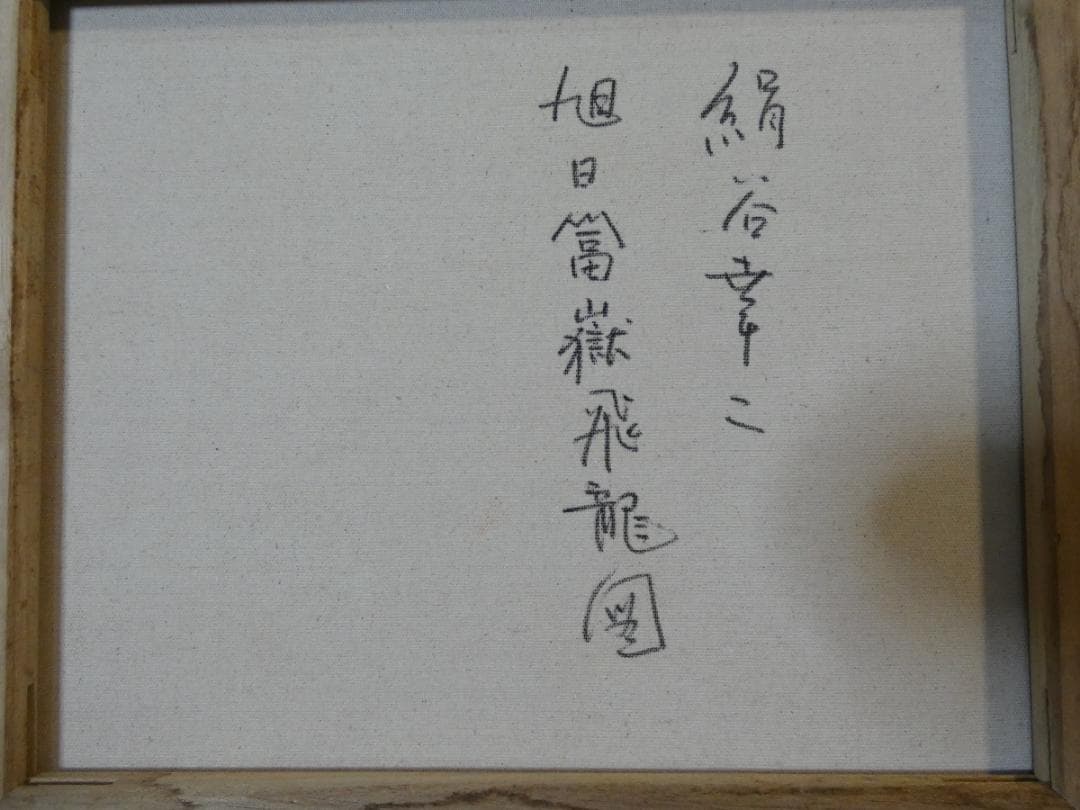 絹谷幸二
旭日富嶽飛龍図